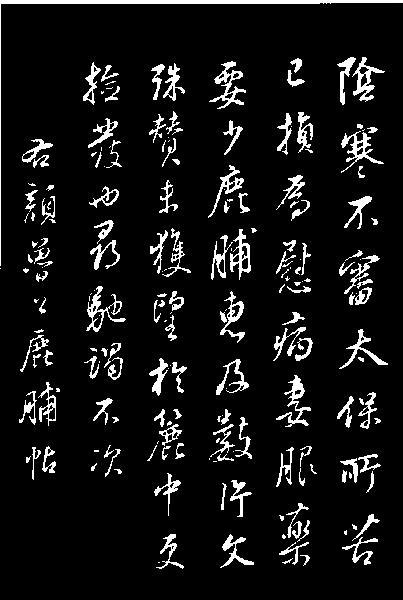 陰寒不審太保所苦
已損爲慰病妻服藥
要少鹿脯惠及數片文
殊贊未獲望於簏中更
撿發也尋馳謁不次
右顏魯公鹿脯帖